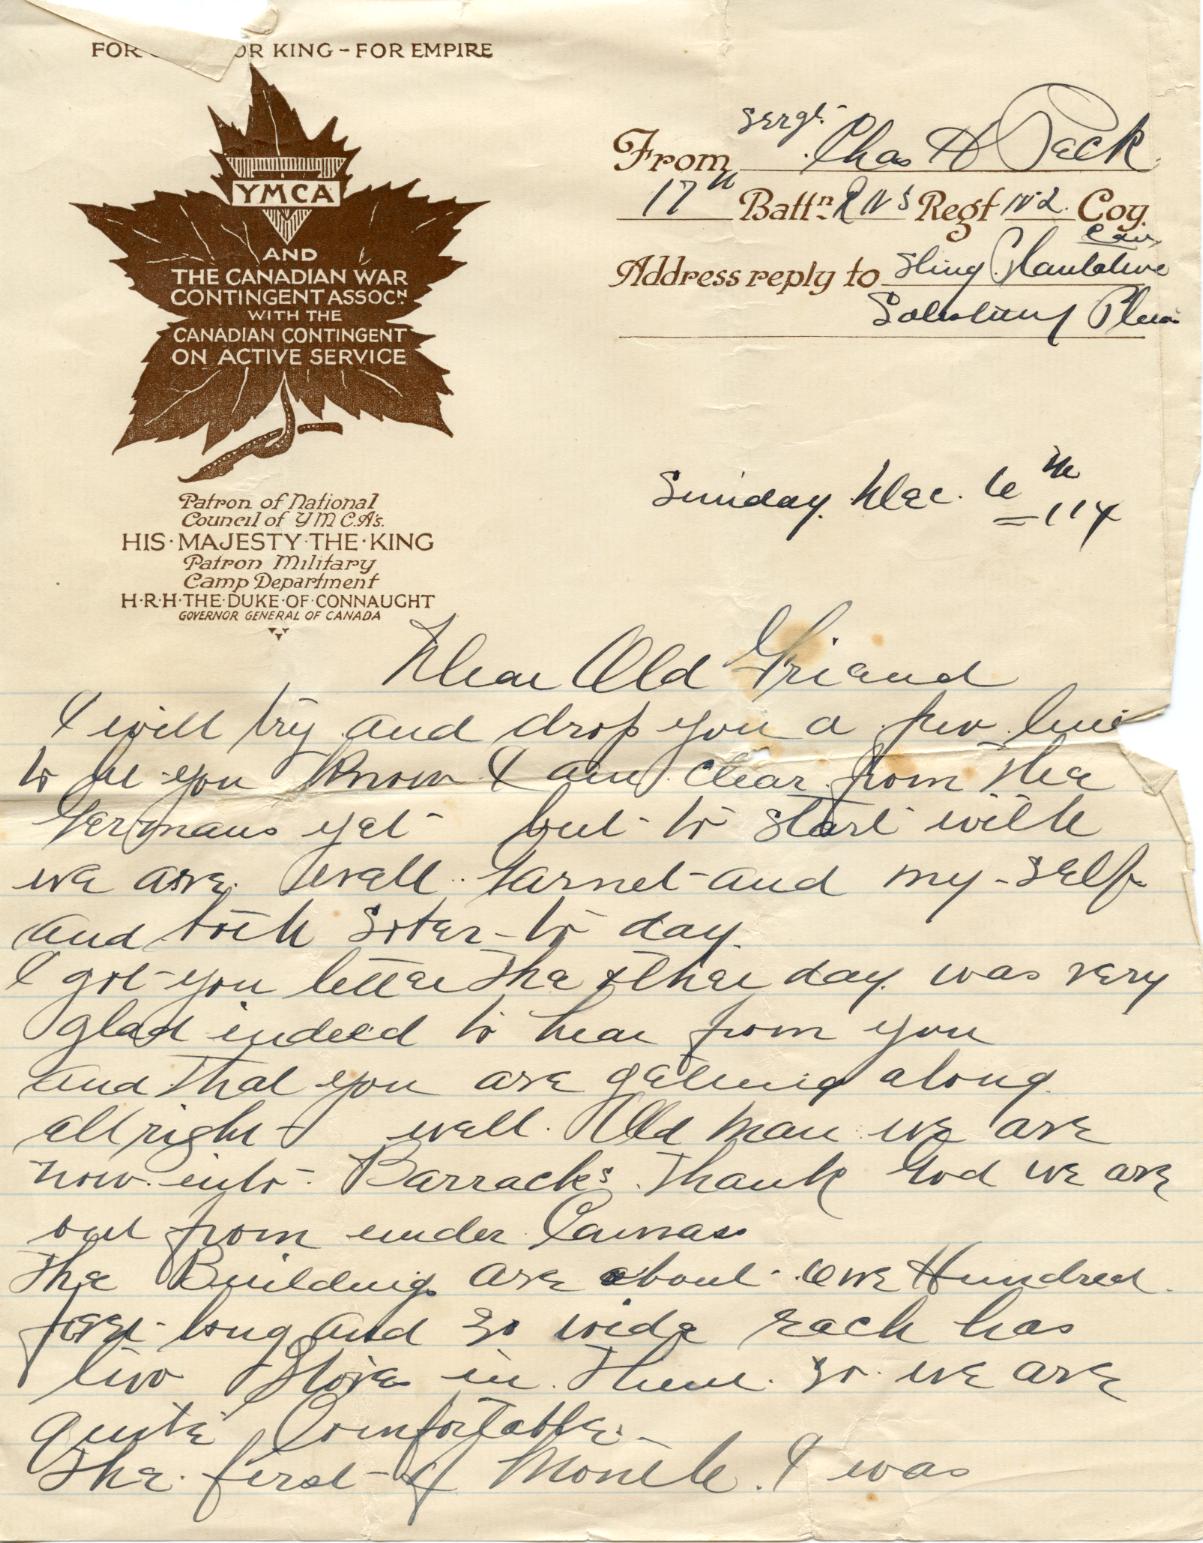 FOR OR KING – FOR EMPIRE
YMCA
AND
THE CANADIAN WAR
CONTINGENT ASSOCN
WITH THE
CANADIAN CONTINGENT
ON ACTIVE SERVICE
Patron of National
Council of YMCA's.
HIS·MAJESTY·THE·KING
Patron Military
Camp Department
H·R·H·THE·DUKE·OF·CONNAUGHT
GOVERNOR GENERAL OF CANADA
From Sergt. Chas H Peck
17th Battn R N S Regt No 2. Coy.
Address reply to Sling Plantation
Salisbury Plain
Sunday. Dec. 6th
14
Dear Old Friend
I will try and drop you a few line
to let you know I am clear from the
Germans yet but to start with
we are well Garnet and my-self
and both to day.
I got you letter the other day was very
glad indeed to hear from you
and that you are getting along
all right well. Old man we are
now into Barracks. Thank God we are
out from under Canvas
The Buildings are about one Hundred
feet long and 30 wide each has
two Stoves in them. so we are
quite Comfortable.
The first of Month. I was